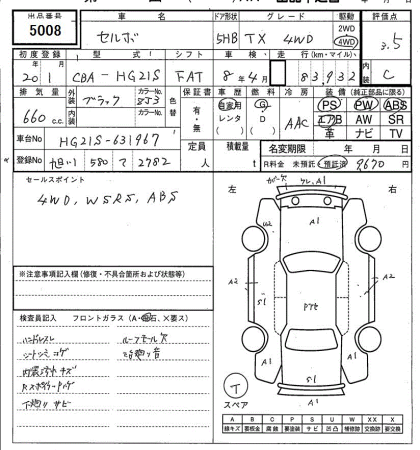 出品番号 車 名 ドア形状 グレード 駆動 評価点
5008 セルボ 5HB TX 4WD 2WD 4WD 3.5
初度登録 型 式 シフト 車 検 走 行(km・マイル) 内装
20 1 CBA-HG21S FAT 8年4月 83,932 C
排気量 外装 カラーNo. 色替 保証書 車歴 燃料 冷房 装備(純正部品に限る)
660 c.c. ブラック ZJ3 有・無 自家用 レンタ G D AAC PS PW ABS
内装 カラーNo. エアB AW SR
革 ナビ TV
車台No HG21S-631967 定員 積載量 名変期限 年 月 日
登録No 旭川 580 て 2782 人 t R料金 未預託 預託済 9670 円
セールスポイント
4WD, WSRS, ABS
左 右
A1
A1
W2
A2
A2
S1
A1
S1
A1
※注意事項記入欄(修復・不具合箇所および状態等)
検査員記入 フロントガラス(A・飛石、×要ス)
ハンドルスレ ルーフモール欠
シートシミ コゲ
内装汚れ キズ
下廻りサビ
T
スペア
A B C P S U W X XX
線キズ 要板金 腐蝕 要塗装 サビ 凹凸 補修跡 要交換 交換済